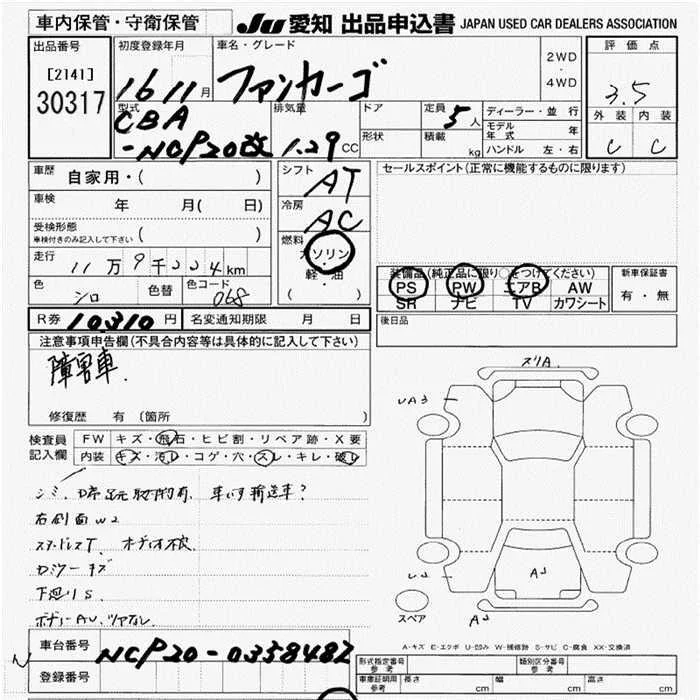 車内保管・守衛保管
JU 愛知 出品申込書 JAPAN USED CAR DEALERS ASSOCIATION
出品番号
[2141]
30317
初度登録年月
16 11月
車名・グレード
ファンカーゴ
2WD
・
4WD
評価点
3.5
外装 内装
C C
型式
CBA
-NCP20改
排気量
1.29 CC
ドア
形状
定員 5人
積載 kg
ディーラー・並行
モデル年式 年
ハンドル 左・右
車歴 自家用・( )
車検 年 月( 日)
受検形態
車検付きのみ記入して下さい ( )
走行 11万9千224km
色 シロ 色替 色コード 068
シフト AT
冷房 AC
燃料
ガソリン
・
軽・油
( )
セールスポイント(正常に機能するものに限ります)
装備品(純正品に限り○をつけてください)
PS PW エアB AW
SR ナビ TV カワシート
新車保証書
有・無
R券 10,310円 名変通知期限 月 日
後日品
注意事項申告欄(不具合内容等は具体的に記入して下さい)
障害車.
修復歴 有 〔箇所 〕
検査員
記入欄
FW キズ・飛石・ヒビ割・リペア跡・X要
内装 キズ・汚レ・コゲ・穴・スレ・キレ・破レ
右側面W2
下廻りS
スリA
UA3
A3
スペア
A-キズ E-エクボ U-凹み W-補修跡 S-サビ C-腐食 XX-交換済
車台番号 NCP20-0358482
登録番号
N
形式指定番号
参考
類別区分番号
参考
車庫証明用
参考
長さ cm 幅 cm 高さ cm